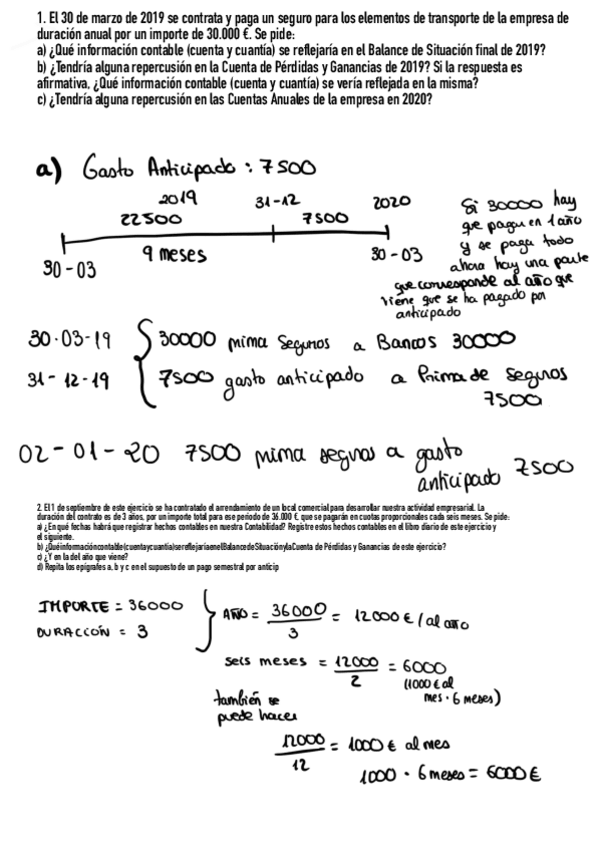 1. El 30 de marzo de 2019 se contrata y paga un seguro para los elementos de transporte de la empresa de
duración anual por un importe de 30.000 €. Se pide:
a) ¿Qué información contable (cuenta y cuantía) se reflejaría en el Balance de Situación final de 2019?
b) ¿Tendría alguna repercusión en la Cuenta de Pérdidas y Ganancias de 2019? Si la respuesta es
afirmativa, ¿Qué información contable (cuenta y cuantía) se vería reflejada en la misma?
c) ¿Tendría alguna repercusión en las Cuentas Anuales de la empresa en 2020?
a) Gasto Anticipado : 7500
2019 31-12 2020
22500 7500
30-03 9 meses 30-03
Si 30000 hay
que pagar en 1 año
y se paga todo
ahora hay una parte
que corresponde al año que
viene que se ha pagado por
anticipado
30.03-19 { 30000 prima seguros a Bancos 30000
31-12-19 7500 gasto anticipado a Prima de seguros
7500
02-01-20 7500 prima seguros a gasto
anticipado 7500
2. El 1 de septiembre de este ejercicio se ha contratado el arrendamiento de un local comercial para desarrollar nuestra actividad empresarial. La
duración del contrato es de 3 años, por un importe total para ese periodo de 36.000 €, que se pagarán en cuotas proporcionales cada seis meses. Se pide:
a) ¿En qué fechas habrá que registrar hechos contables en nuestra Contabilidad? Registre estos hechos contables en el libro diario de este ejercicio y
el siguiente.
b) ¿Quéinformacióncontable(cuentaycuantía)sereflejaríaenelBalancedeSituaciónylaCuenta de Pérdidas y Ganancias de este ejercicio?
c) ¿Y en la del año que viene?
d) Repita los epígrafes a, b y c en el supuesto de un pago semestral por anticip
IMPORTE = 36000
DURACCIÓN = 3
} AÑO = 36000/3 = 12000 € / al año
seis meses = 12000/2 = 6000
(1000 € al
mes · 6 meses)
también se
puede hacer
12000/12 = 1000 € al mes
1000 · 6 meses = 6000 €